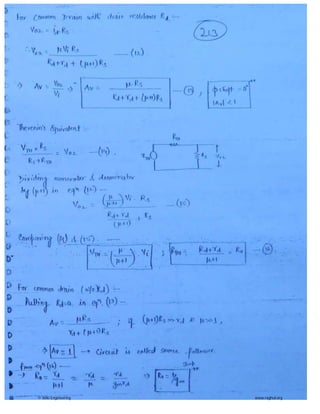 For Common Drain with drain resistance Rd :-
213
Vo2 = id.Rs
∴ Vo2 = μVi Rs / Rd+rd + (μ+1)Rs — (12)
⇒ Av = Vo2 / Vi ⇒ Av = μ.Rs / Rd+rd+(μ+1)Rs — (13), phase shift = 0° |Av| < 1
Thevenin's Equivalent :-
VTH × Rs / Rs+RTH = Vo2 — (14)
Dividing numerator & denominator
by (μ+1) in eqn (12) :-
Vo2 = (μ/μ+1) Vi . Rs / Rd+rd / (μ+1) + Rs — (15)
Combining (14) & (15) :-
VTH = (μ / μ+1) Vi ; RTH = Rd+rd / μ+1 = Ro — (16)
For common drain (w/o Rd) :-
Putting Rd=0 in eqn (13) :-
Av = μRs / rd + (μ+1)Rs ; if (μ+1)Rs >> rd & μ>>1,
⇒ Av = 1 → Circuit is called source follower.
From eqn (16) :-
→ Ro = rd / μ+1 = rd / μ = rd / gmrd ⇒ Ro = 1/gm